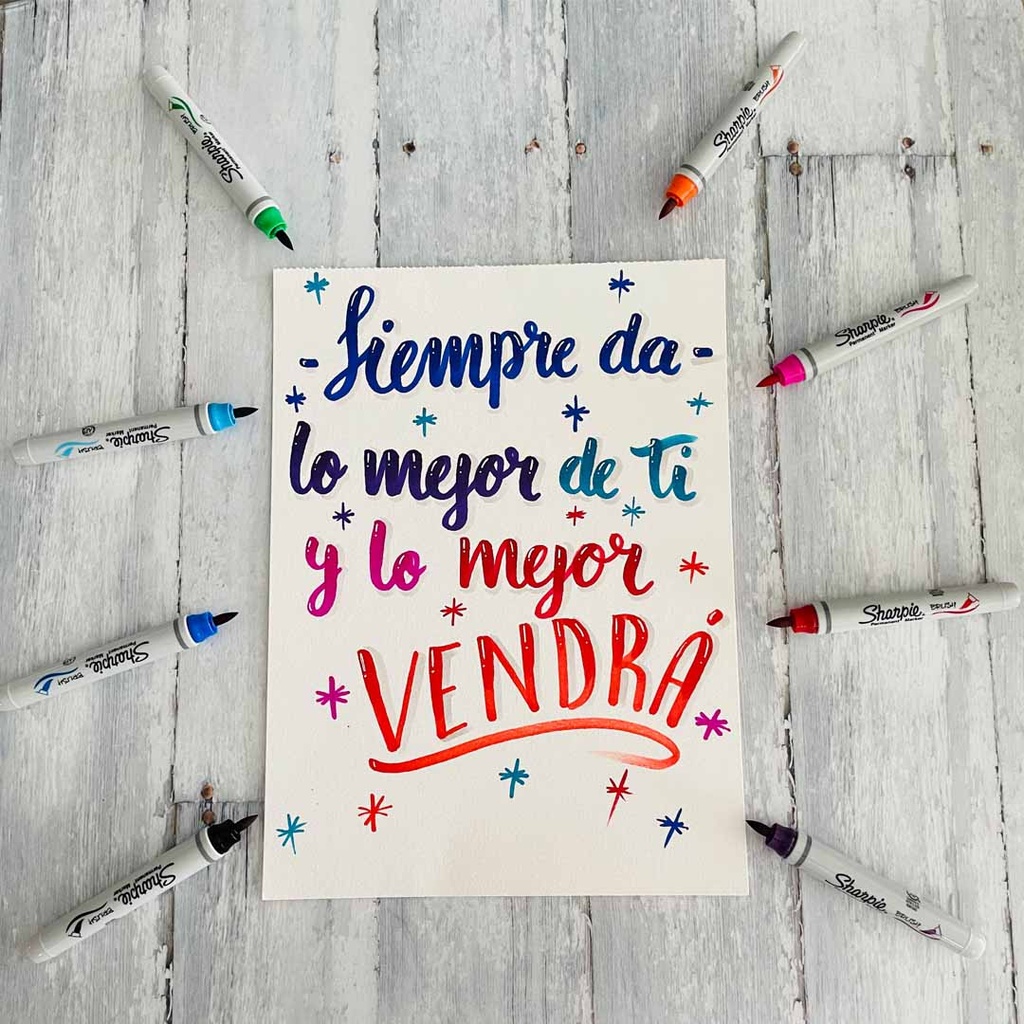 -Siempre da-
lo mejor de ti
y lo mejor
VENDRÁ
Sharpie
BRUSH
Sharpie
BRUSH
Sharpie
Permanent Marker
BRUSH
Sharpie
Permanent Marker
BRUSH
Sharpie
Permanent Marker
BRUSH
Sharpie
Permanent Marker
BRUSH
Sharpie
Permanent Marker
BRUSH
Sharpie
BRUSH